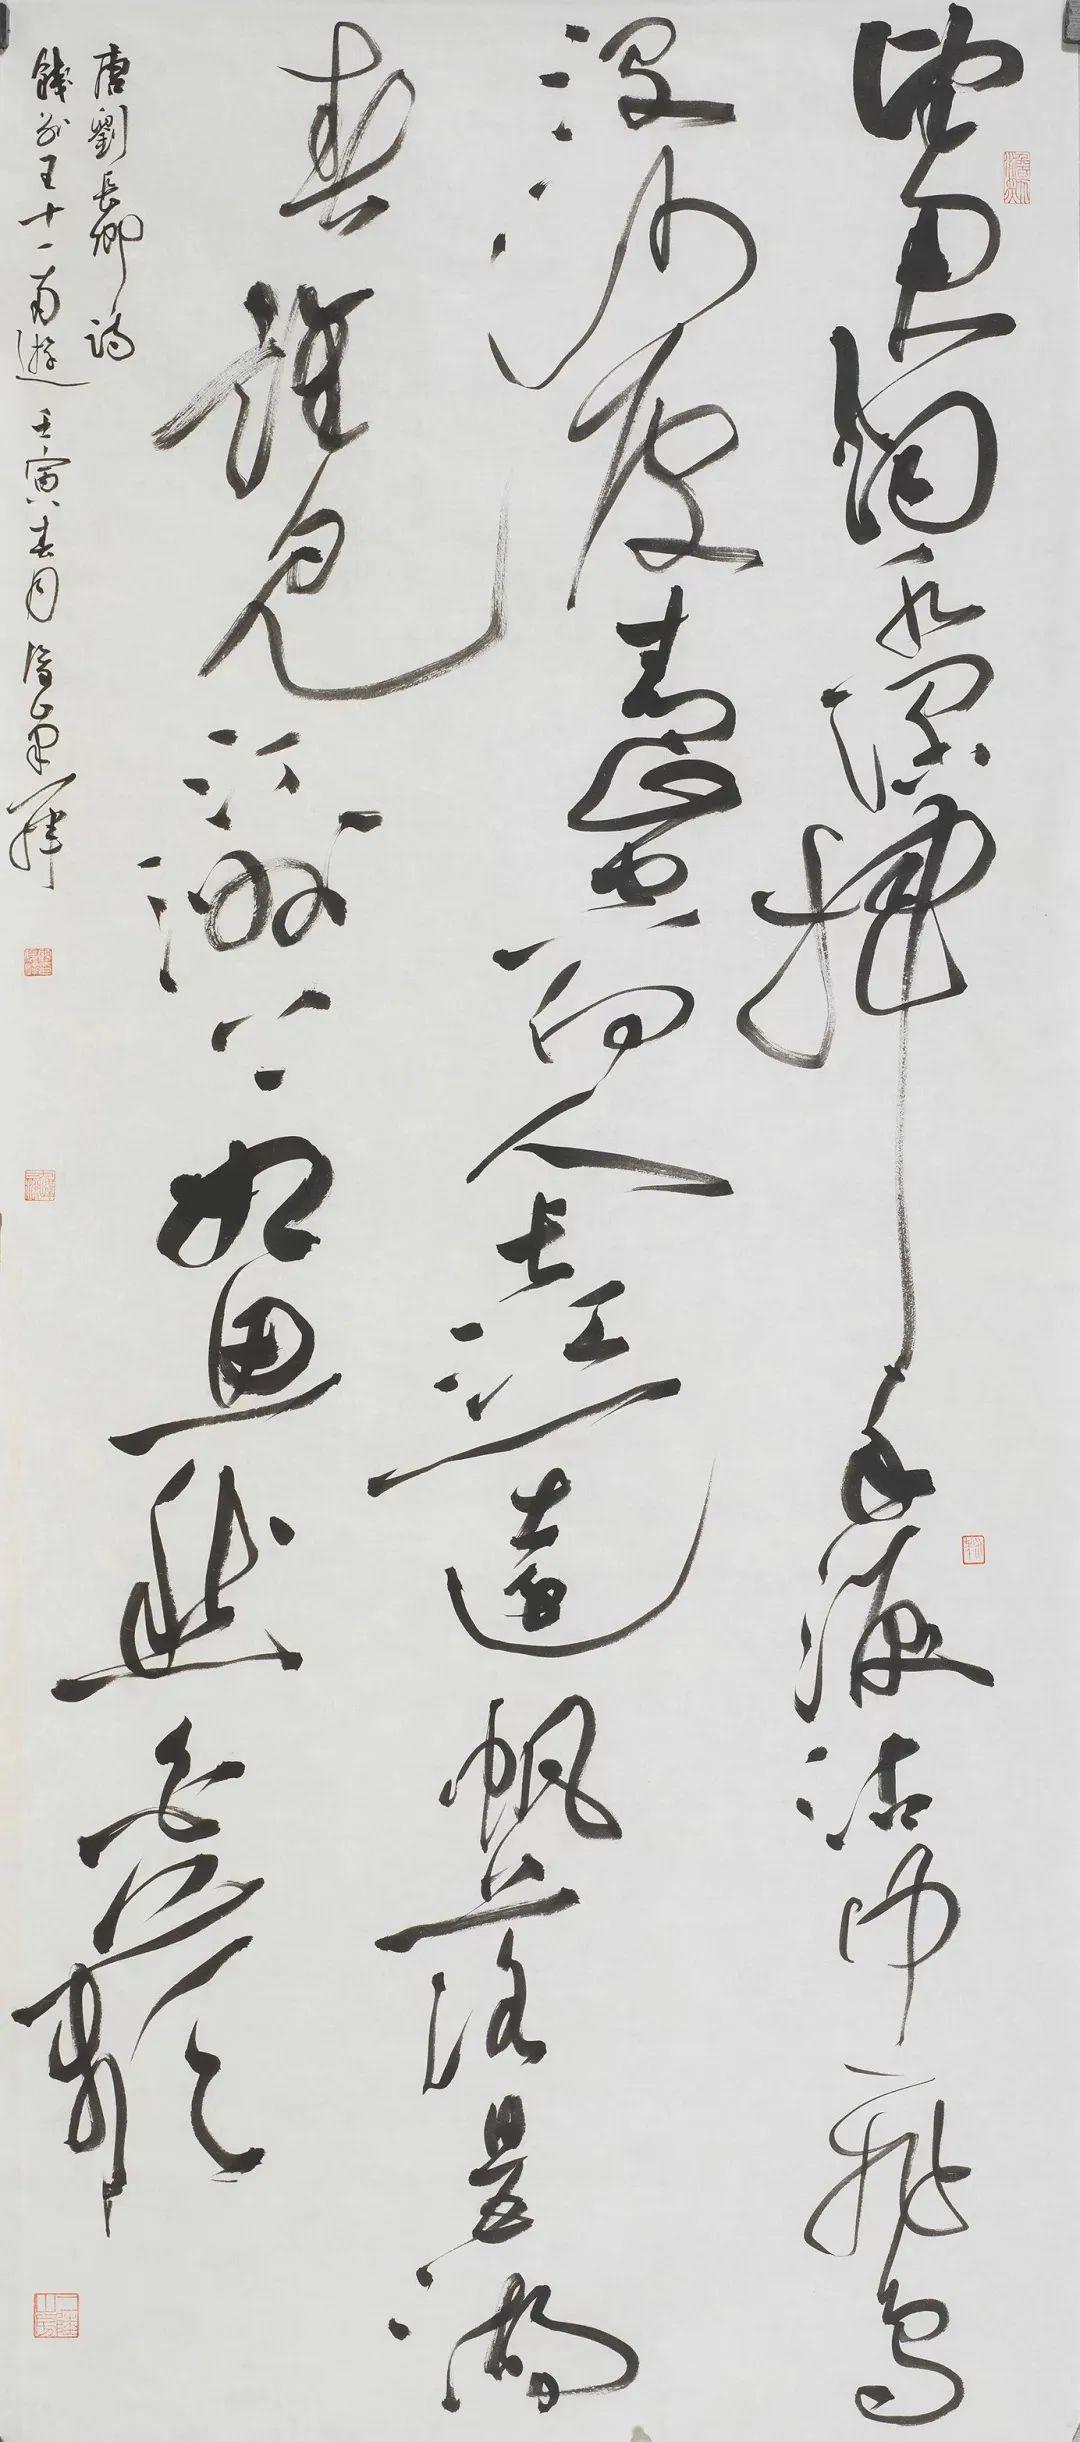 望君烟水濶揮手淚沾巾飛鳥
没何處青山空向人長江一遠帆落日五湖
春誰見汀洲上相思愁白蘋
唐劉長卿詩
餞别王十一南遊壬寅春月